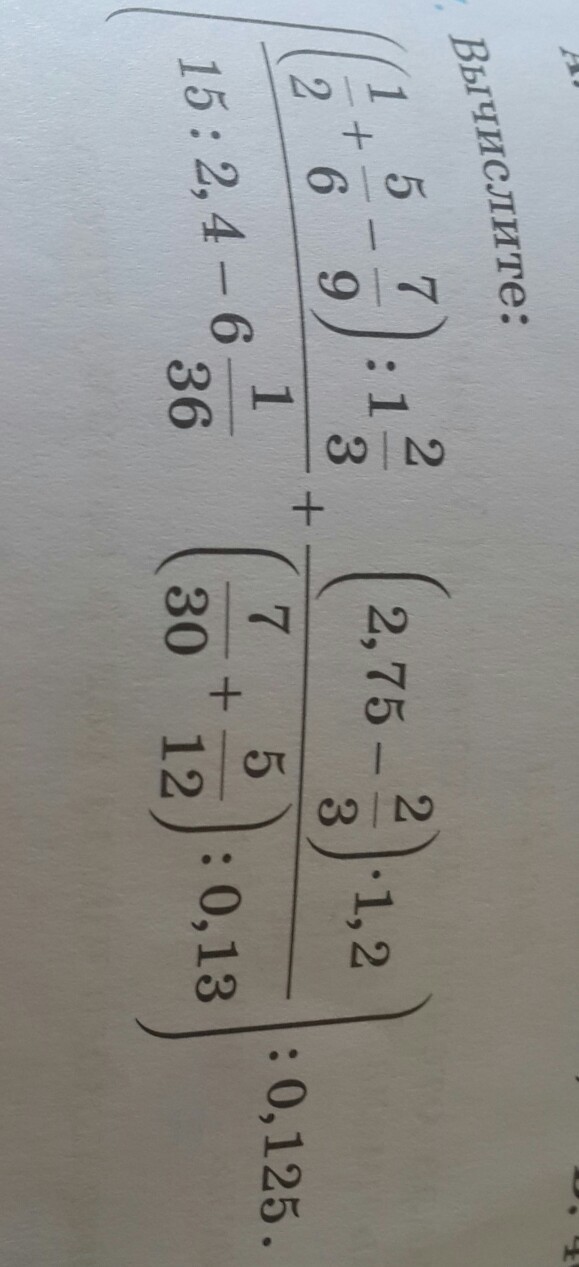 Вычислите:
((1/2 + 5/6 − 7/9) : 1 2/3)/(15 : 2,4 − 6 1/36) + ((2,75 − 2/3) · 1,2)/((7/30 + 5/12) : 0,13)) : 0,125.